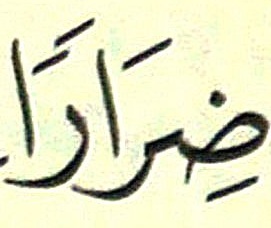 ضِرَارًا